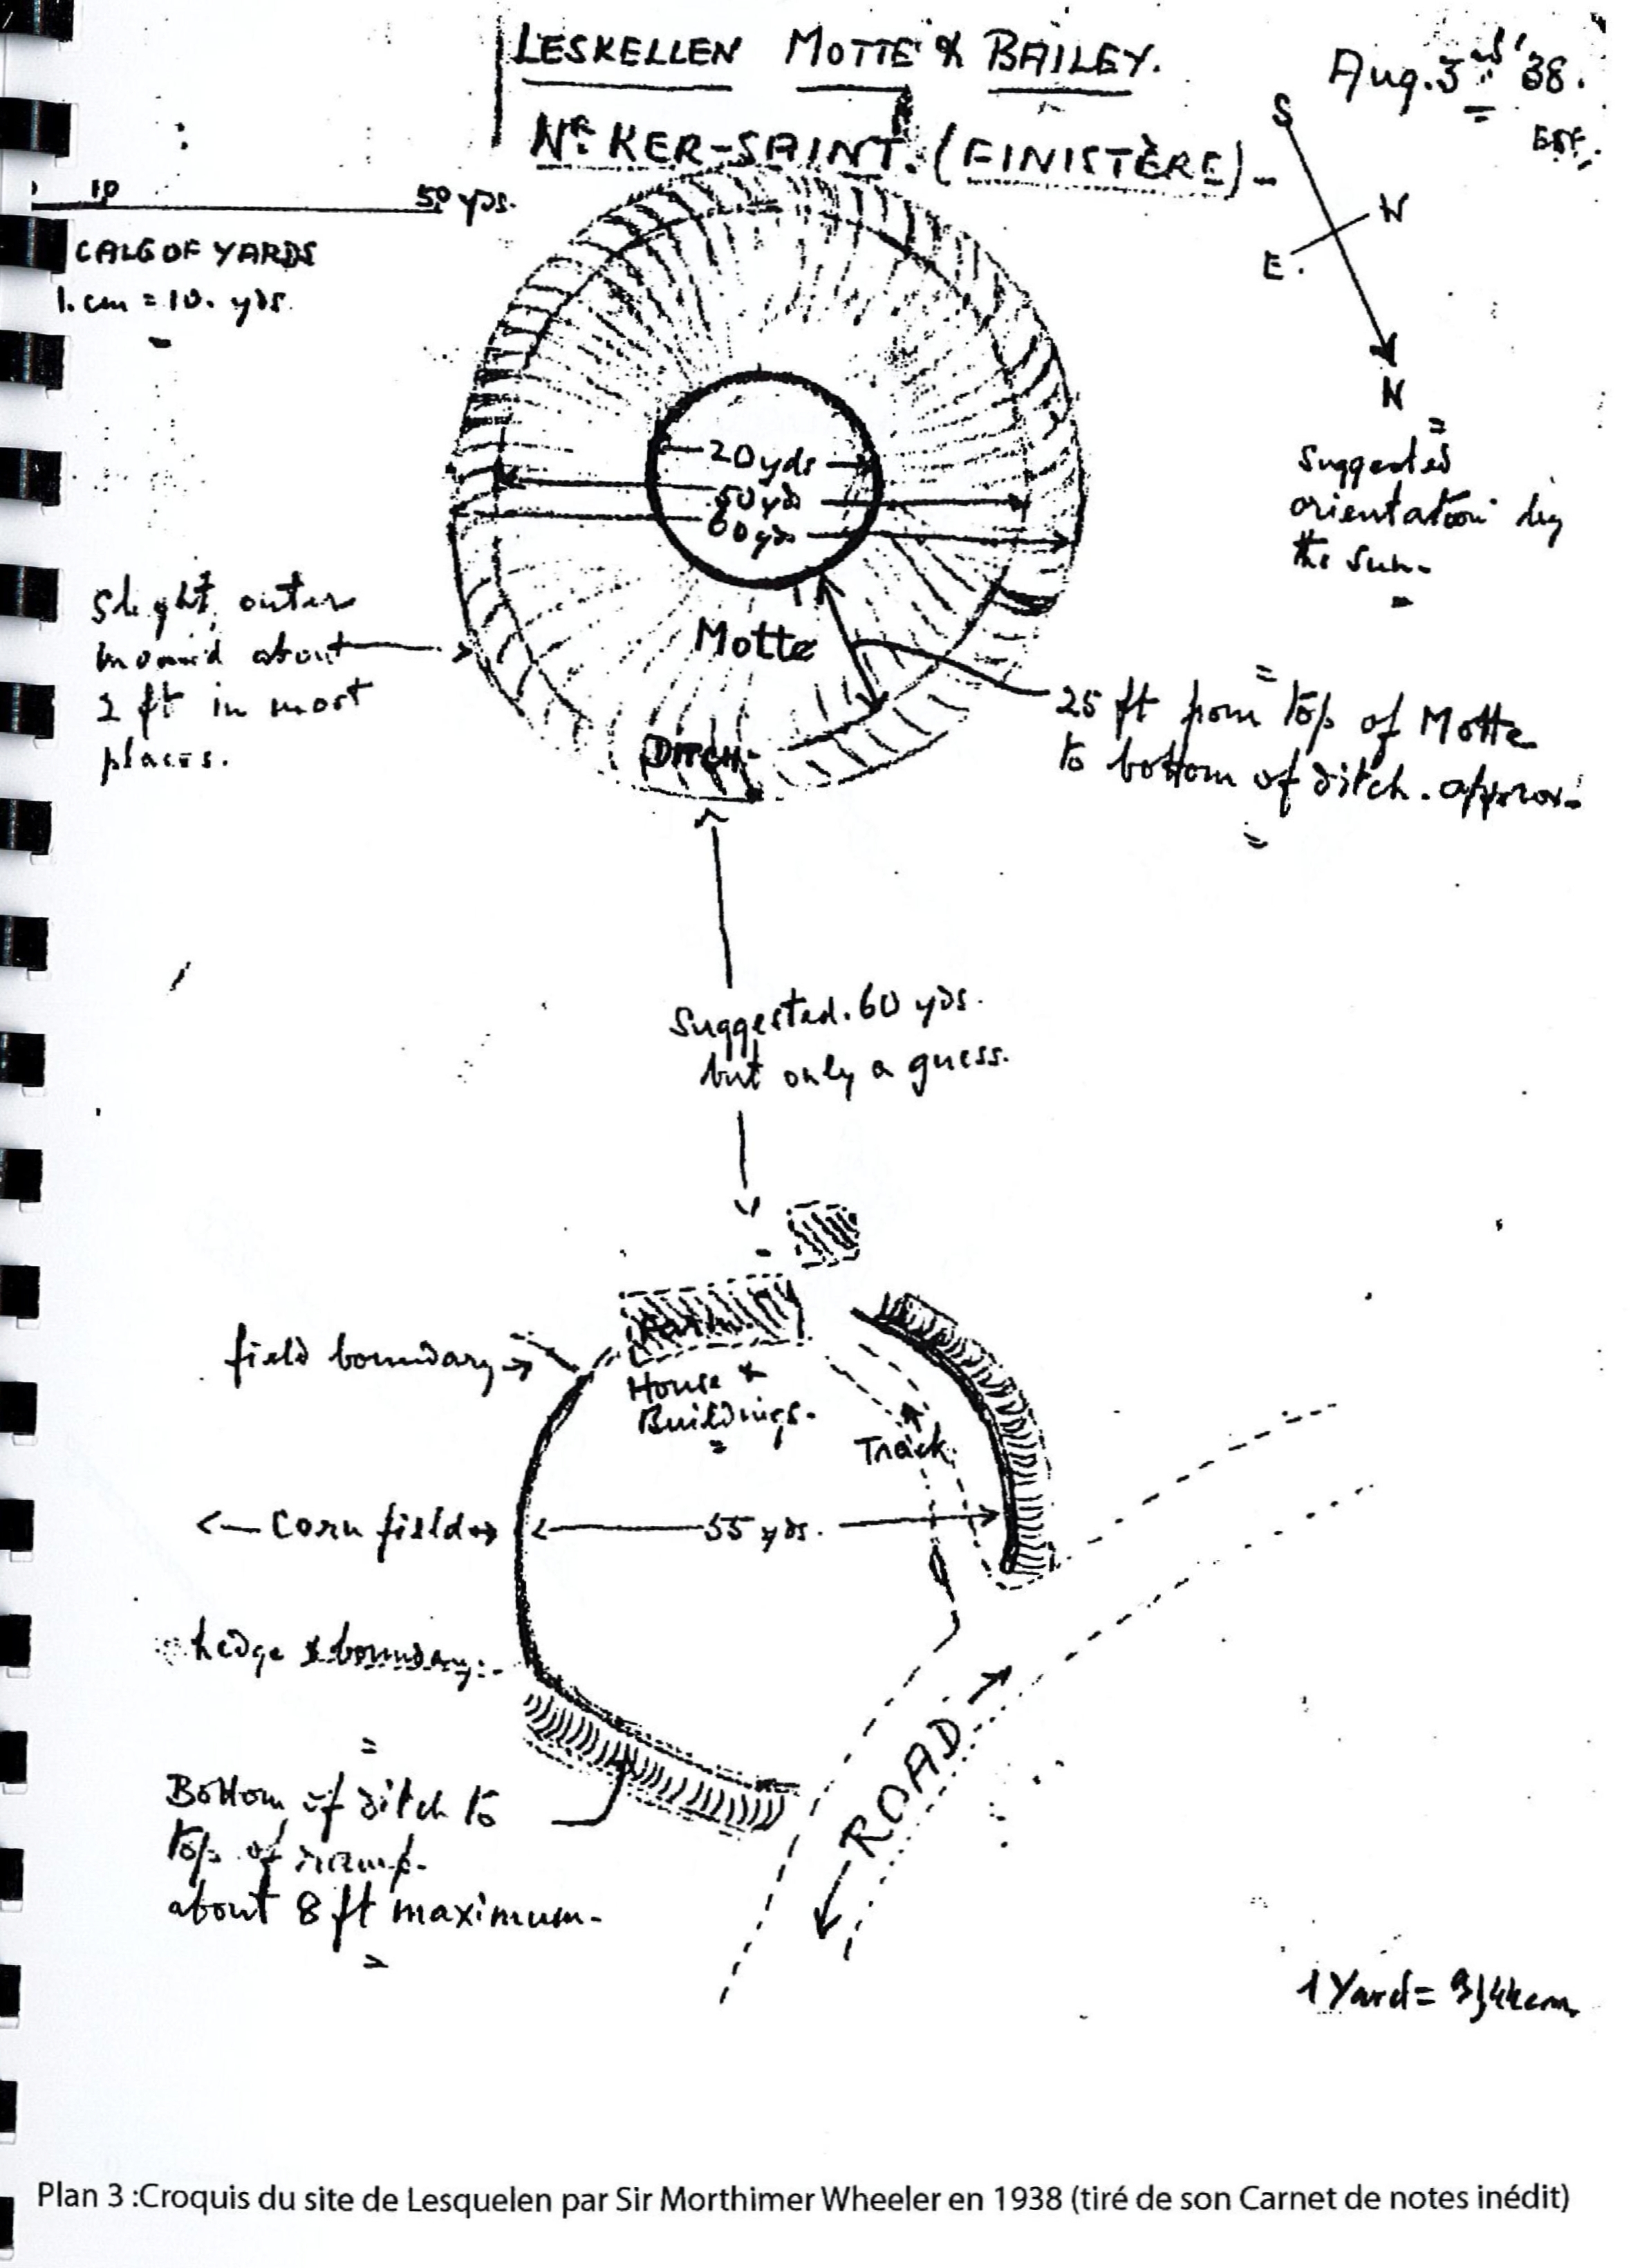 LESKELLEN MOTTE & BAILEY.
Aug. 3rd '38.
Nr. KER-SAINT. (FINISTÈRE)
S
W
E.
N
suggested
orientation by
the sun.
10 50 yds.
CALE OF YARDS
1. cm = 10. yds.
20 yds
50 yds
60 yds
Motte
DITCH
slight outer
mound about
2 ft in most
places.
25 ft from top of Motte
to bottom of ditch. approx.
Suggested. 60 yds.
but only a guess.
field boundary
Farm
House &
Buildings.
Track
Corn field
55 yds.
hedge & boundary
ROAD
Bottom of ditch to
top of ramp.
about 8 ft maximum.
1 Yard = 91,44cm
Plan 3 :Croquis du site de Lesquelen par Sir Morthimer Wheeler en 1938 (tiré de son Carnet de notes inédit)